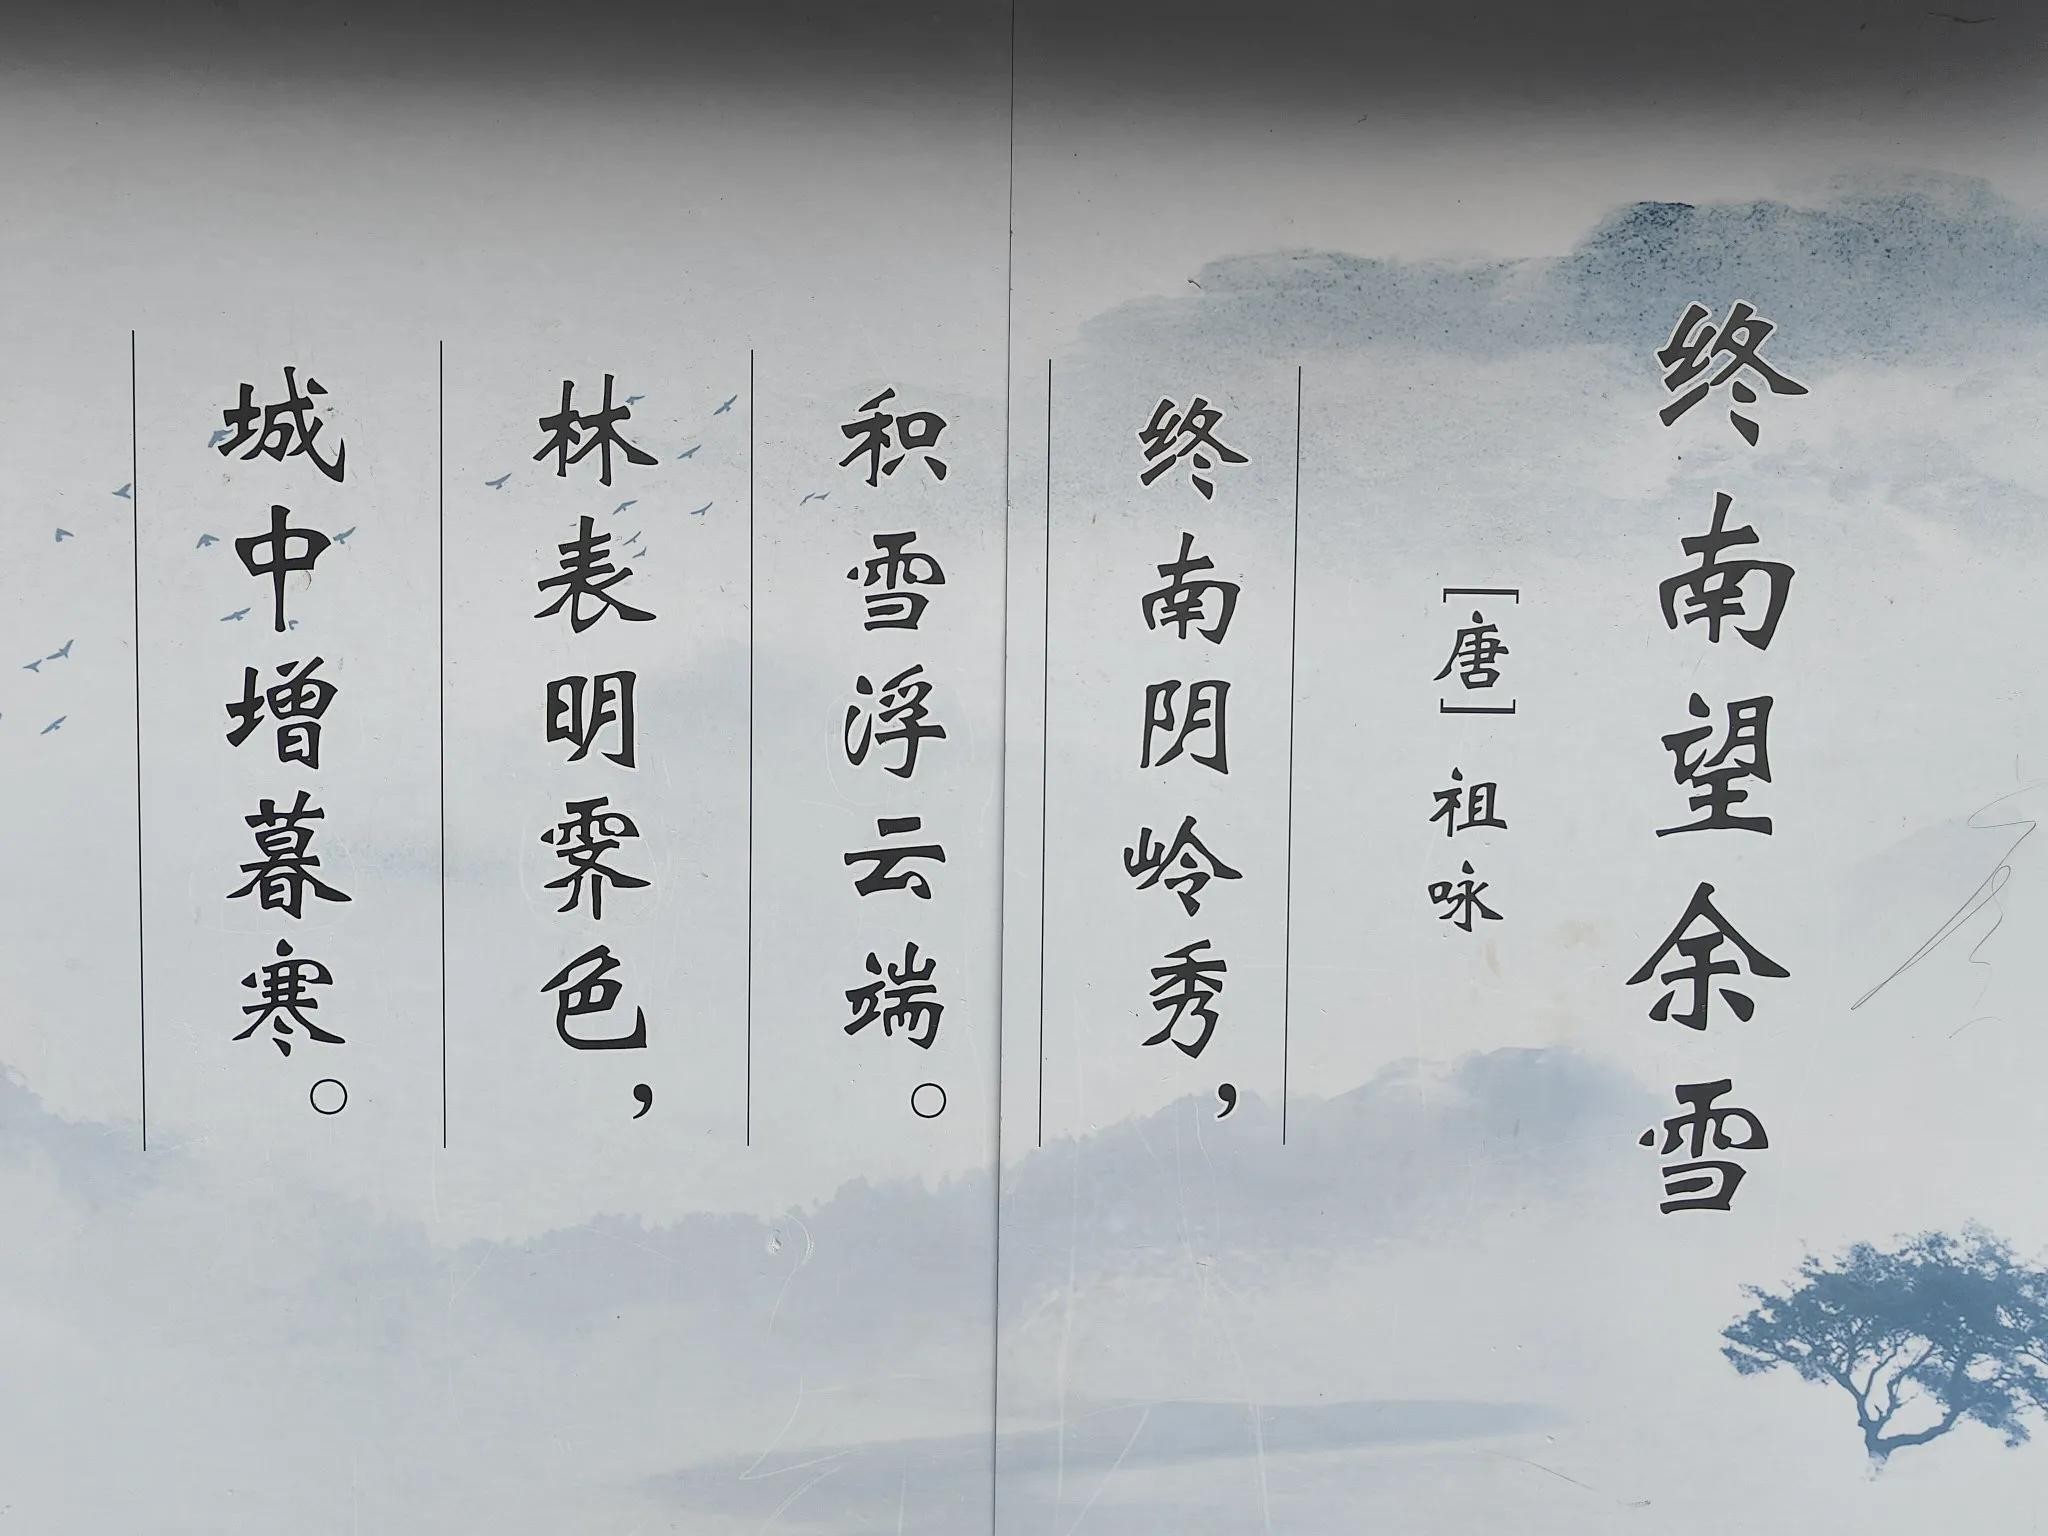 终南望余雪
[唐] 祖咏
终南阴岭秀，
积雪浮云端。
林表明霁色，
城中增暮寒。